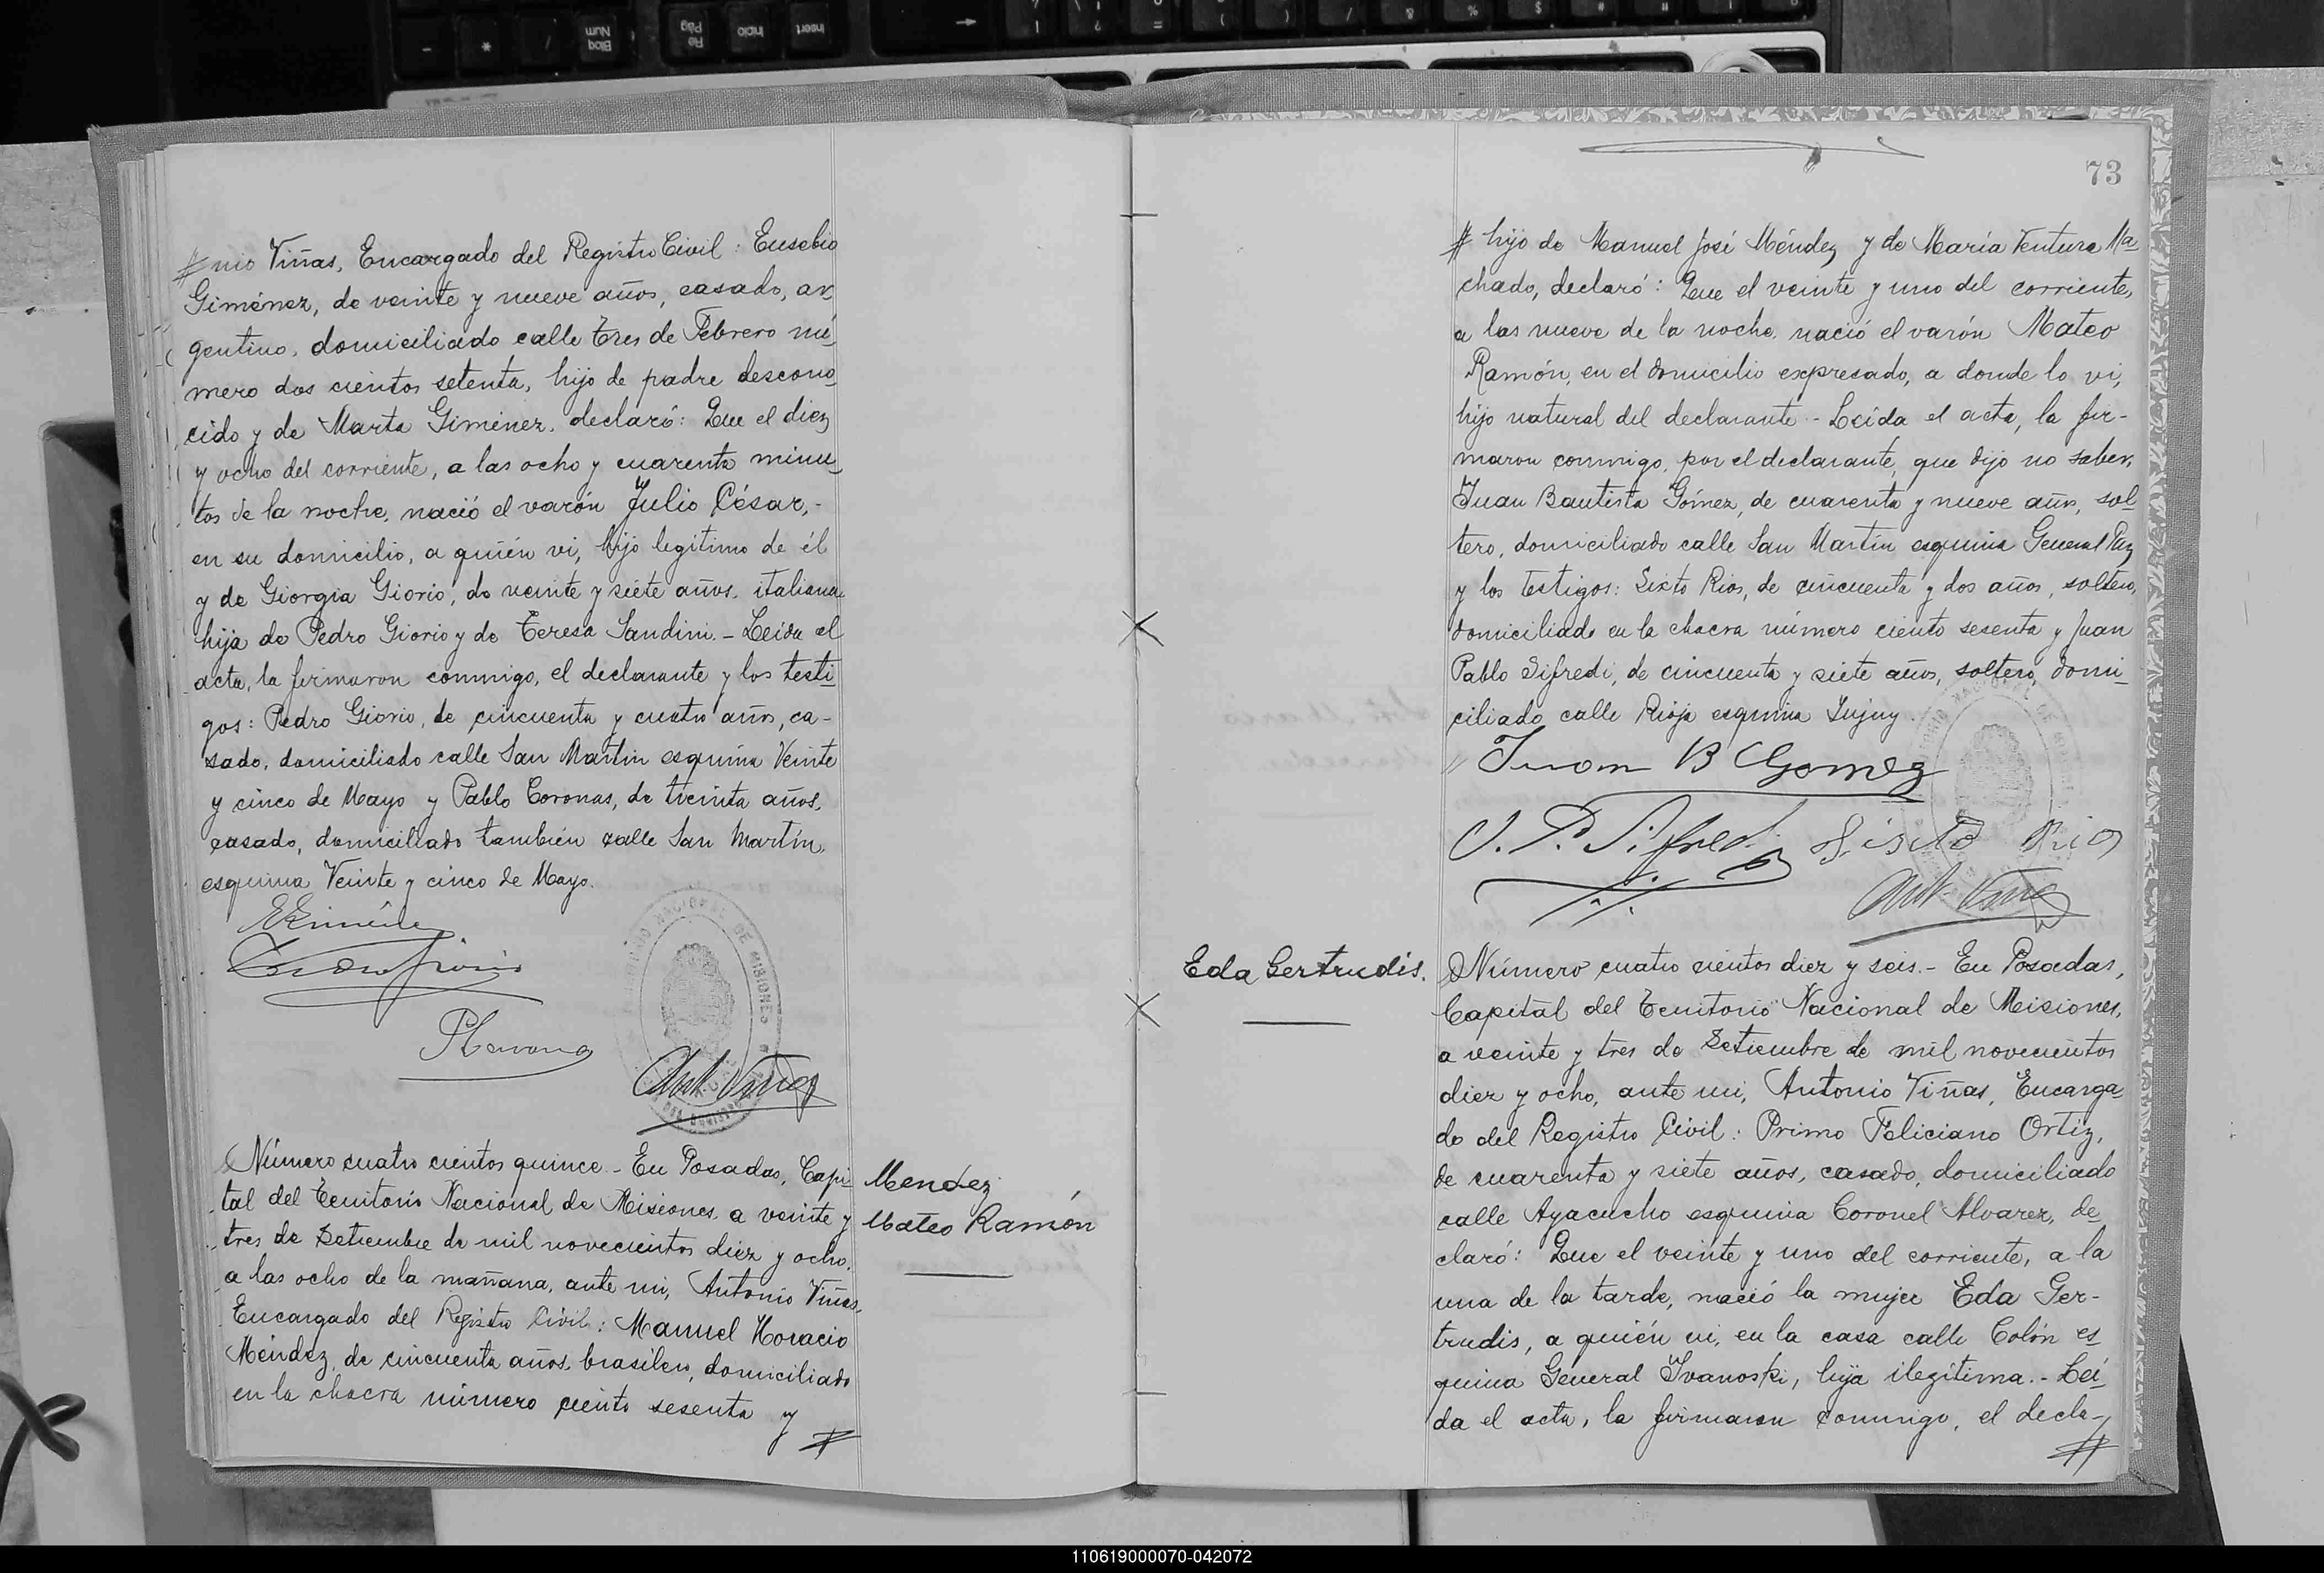 nio Viñas, Encargado del Registro Civil: Eusebio
Giménez, de veinte y nueve años, casado, ar-
gentino, domiciliado calle Tres de Febrero nú-
mero dos cientos setenta, hijo de padre descono-
cido y de Marta Giménez, declaró: Que el diez
y ocho del corriente, a las ocho y cuarenta minu-
tos de la noche, nació el varón Julio César,-
en su domicilio, a quién vi, hijo legítimo de él
y de Giorgia Giorio, de veinte y siete años, italiana
hija de Pedro Giorio y de Teresa Sandini.- Leída el
acta, la firmaron conmigo, el declarante y los testi-
gos: Pedro Giorio, de cincuenta y cuatro años, ca-
sado, domiciliado calle San Martín esquina Veinte
y cinco de Mayo y Pablo Coronas, de treinta años,
casado, domiciliado también calle San Martín,
esquina Veinte y cinco de Mayo.
Número cuatro cientos quince.- En Posadas, Capi-
tal del Territorio Nacional de Misiones, a veinte y
tres de Setiembre de mil novecientos diez y ocho,
a las ocho de la mañana, ante mi, Antonio Viñas,
Encargado del Registro Civil: Manuel Horacio
Méndez, de cincuenta años, brasilero, domiciliado
en la chacra número ciento sesenta y #
Mendez
Mateo Ramón
73
# hijo de Manuel José Méndez y de María Ventura Ma-
chado, declaró: Que el veinte y uno del corriente,
a las nueve de la noche, nació el varón Mateo
Ramón, en el domicilio expresado, a donde lo vi,
hijo natural del declarante.- Leída el acta, la fir-
maron conmigo, por el declarante, que dijo no saber,
Juan Bautista Gómez, de cuarenta y nueve años, sol-
tero, domiciliado calle San Martín esquina General Paz
y los testigos: Sixto Rios, de cincuenta y dos años, soltero,
domiciliado en la chacra número ciento sesenta y Juan
Pablo Sifredi, de cincuenta y siete años, soltero, domi-
ciliado calle Rioja esquina Jujuy.
Juan B Gomez
J. P. Sifredi Sisto Rios
Eda Gertrudis.
Número cuatro cientos diez y seis.- En Posadas,
Capital del Territorio Nacional de Misiones,
a veinte y tres de Setiembre de mil novecientos
diez y ocho, ante mi, Antonio Viñas, Encarga-
do del Registro Civil: Primo Feliciano Ortiz,
de cuarenta y siete años, casado, domiciliado
calle Ayacucho esquina Coronel Alvarez, de-
claró: Que el veinte y uno del corriente, a la
una de la tarde, nació la mujer Eda Ger-
trudis, a quién vi, en la casa calle Colón es-
quina General Ivanoski, hija ilegítima.- Leí-
da el acta, la firmaron conmigo, el decla-
#
110619000070-042072